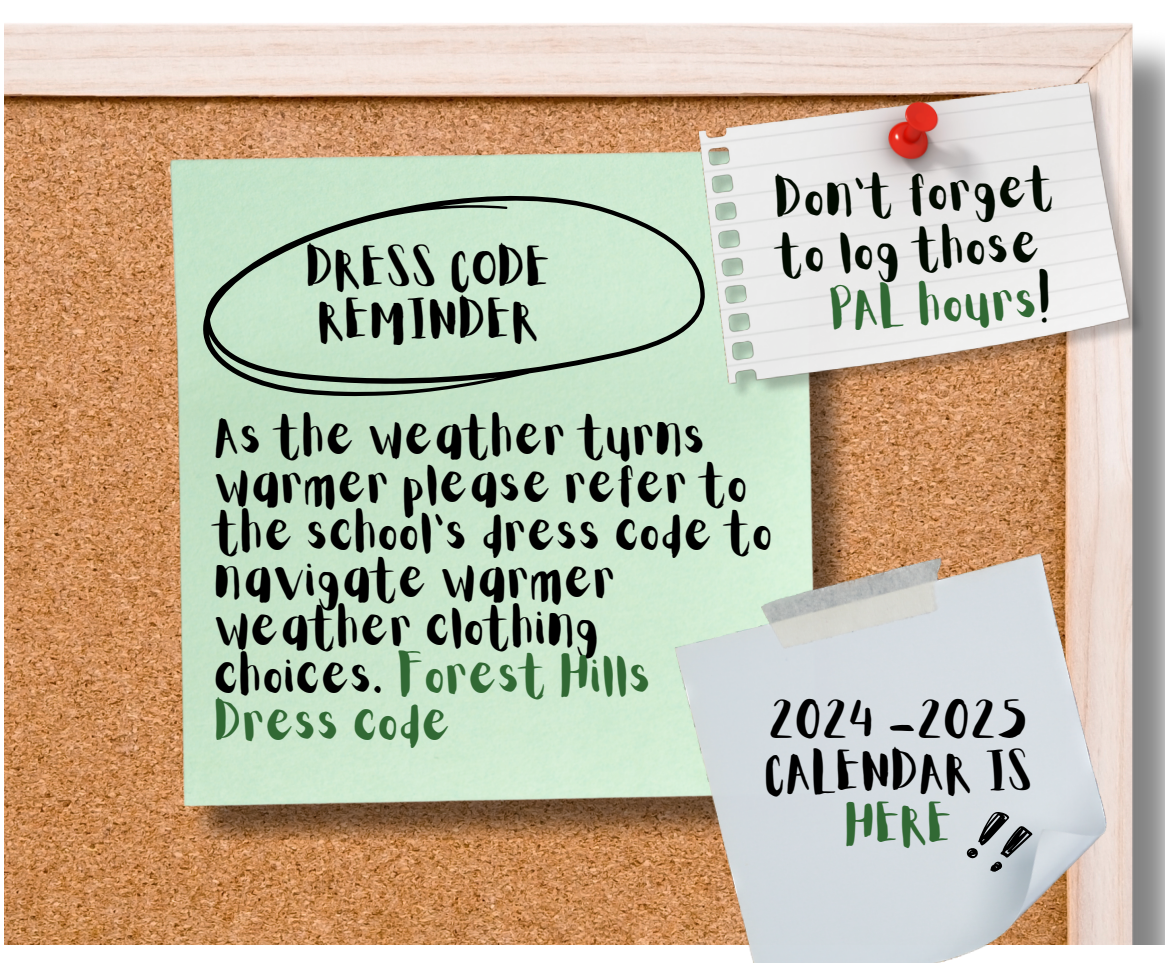 DRESS CODE
REMINDER
As the weather turns
warmer please refer to
the school's dress code to
navigate warmer
weather clothing
choices. Forest Hills
Dress code
Don't forget
to log those
PAL hours!
2024 -2025
CALENDAR IS
HERE !!